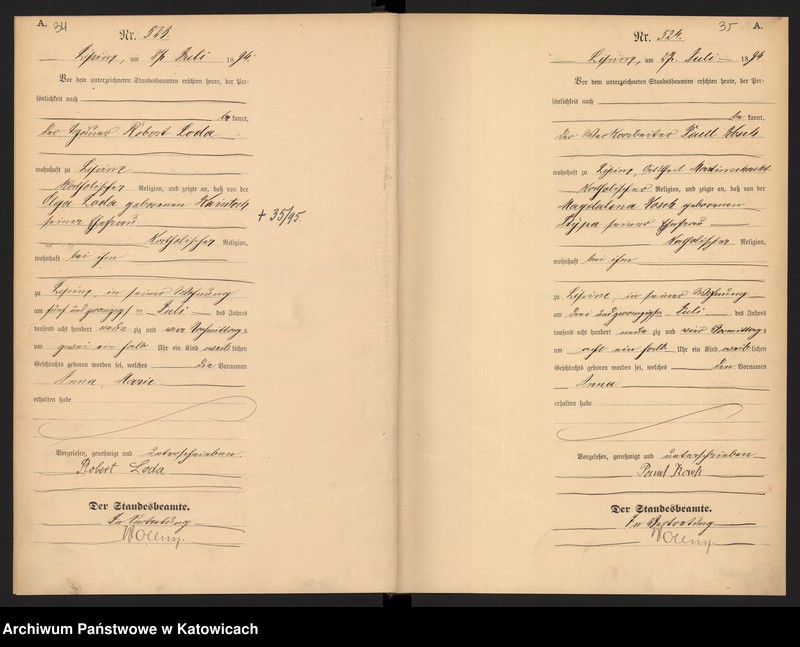 A. 34
Nr. 523.
Lipine, am 27. Juli 1894.
Vor dem unterzeichneten Standesbeamten erschien heute, der Per-
sönlichkeit nach
be kannt,
der Robert Loda
wohnhaft zu Lipine
katholischer Religion, und zeigte an, daß von der
Olga Loda geborenen
seiner Ehefrau
katholischer Religion,
wohnhaft bei ihm
zu Lipine, in seiner Wohnung
am fünf und zwanzigsten Juli des Jahres
tausend acht hundert neun zig und vier Vormittags
um zwei ein halb Uhr ein Kind weib lichen
Geschlechts geboren worden sei, welches die Vornamen
Anna, Marie
erhalten habe
Vorgelesen, genehmigt und unterschrieben.
Robert Loda
Der Standesbeamte.
In Vertretung
Wolny.
+ 35/95.
35 A.
Nr. 524.
Lipine, am 27. Juli 1894
Vor dem unterzeichneten Standesbeamten erschien heute, der Per-
sönlichkeit nach
be kannt,
der Werkarbeiter Paul
wohnhaft zu Lipine, Ortstheil
katholischer Religion, und zeigte an, daß von der
Magdalena geborenen
seiner Ehefrau
katholischer Religion,
wohnhaft bei ihm
zu Lipine, in seiner Wohnung
am drei und zwanzigsten Juli des Jahres
tausend acht hundert neun zig und vier Vormittags
um acht ein halb Uhr ein Kind weib lichen
Geschlechts geboren worden sei, welches den Vornamen
Anna
erhalten habe
Vorgelesen, genehmigt und unterschrieben
Paul
Der Standesbeamte.
In Vertretung
Wolny
Archiwum Państwowe w Katowicach